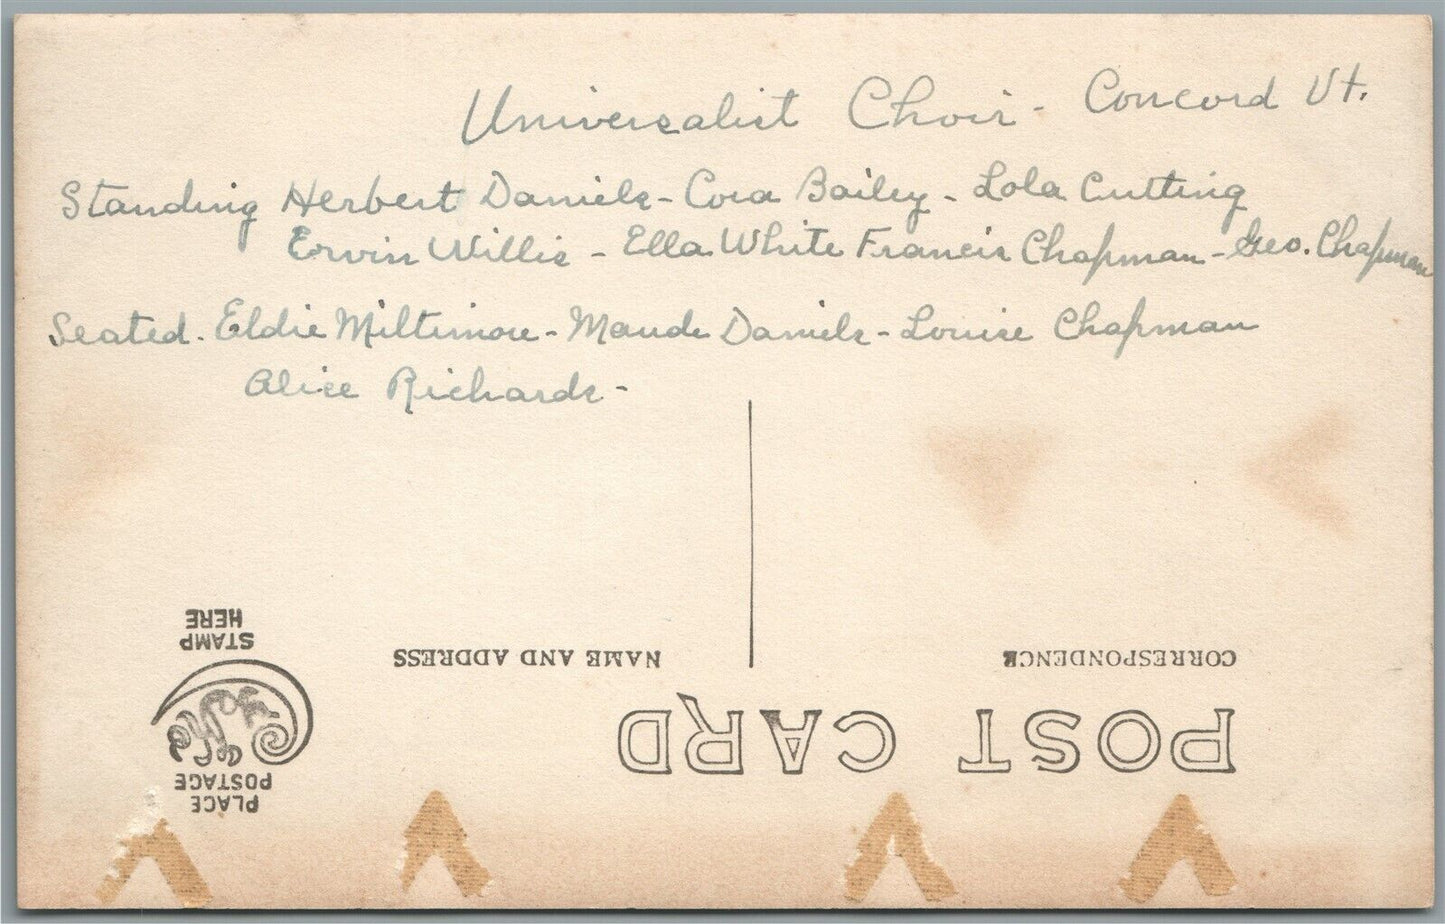 Universalist Choir - Concord Vt.
Standing Herbert Daniels - Cora Bailey - Lola Cutting
Ervin Willis - Ella White Francis Chapman - Geo. Chapman
Seated. Eldie Miltimore - Maude Daniels - Louise Chapman
Alice Richards -
CORRESPONDENCE
NAME AND ADDRESS
POST CARD
PLACE
POSTAGE
STAMP
HERE